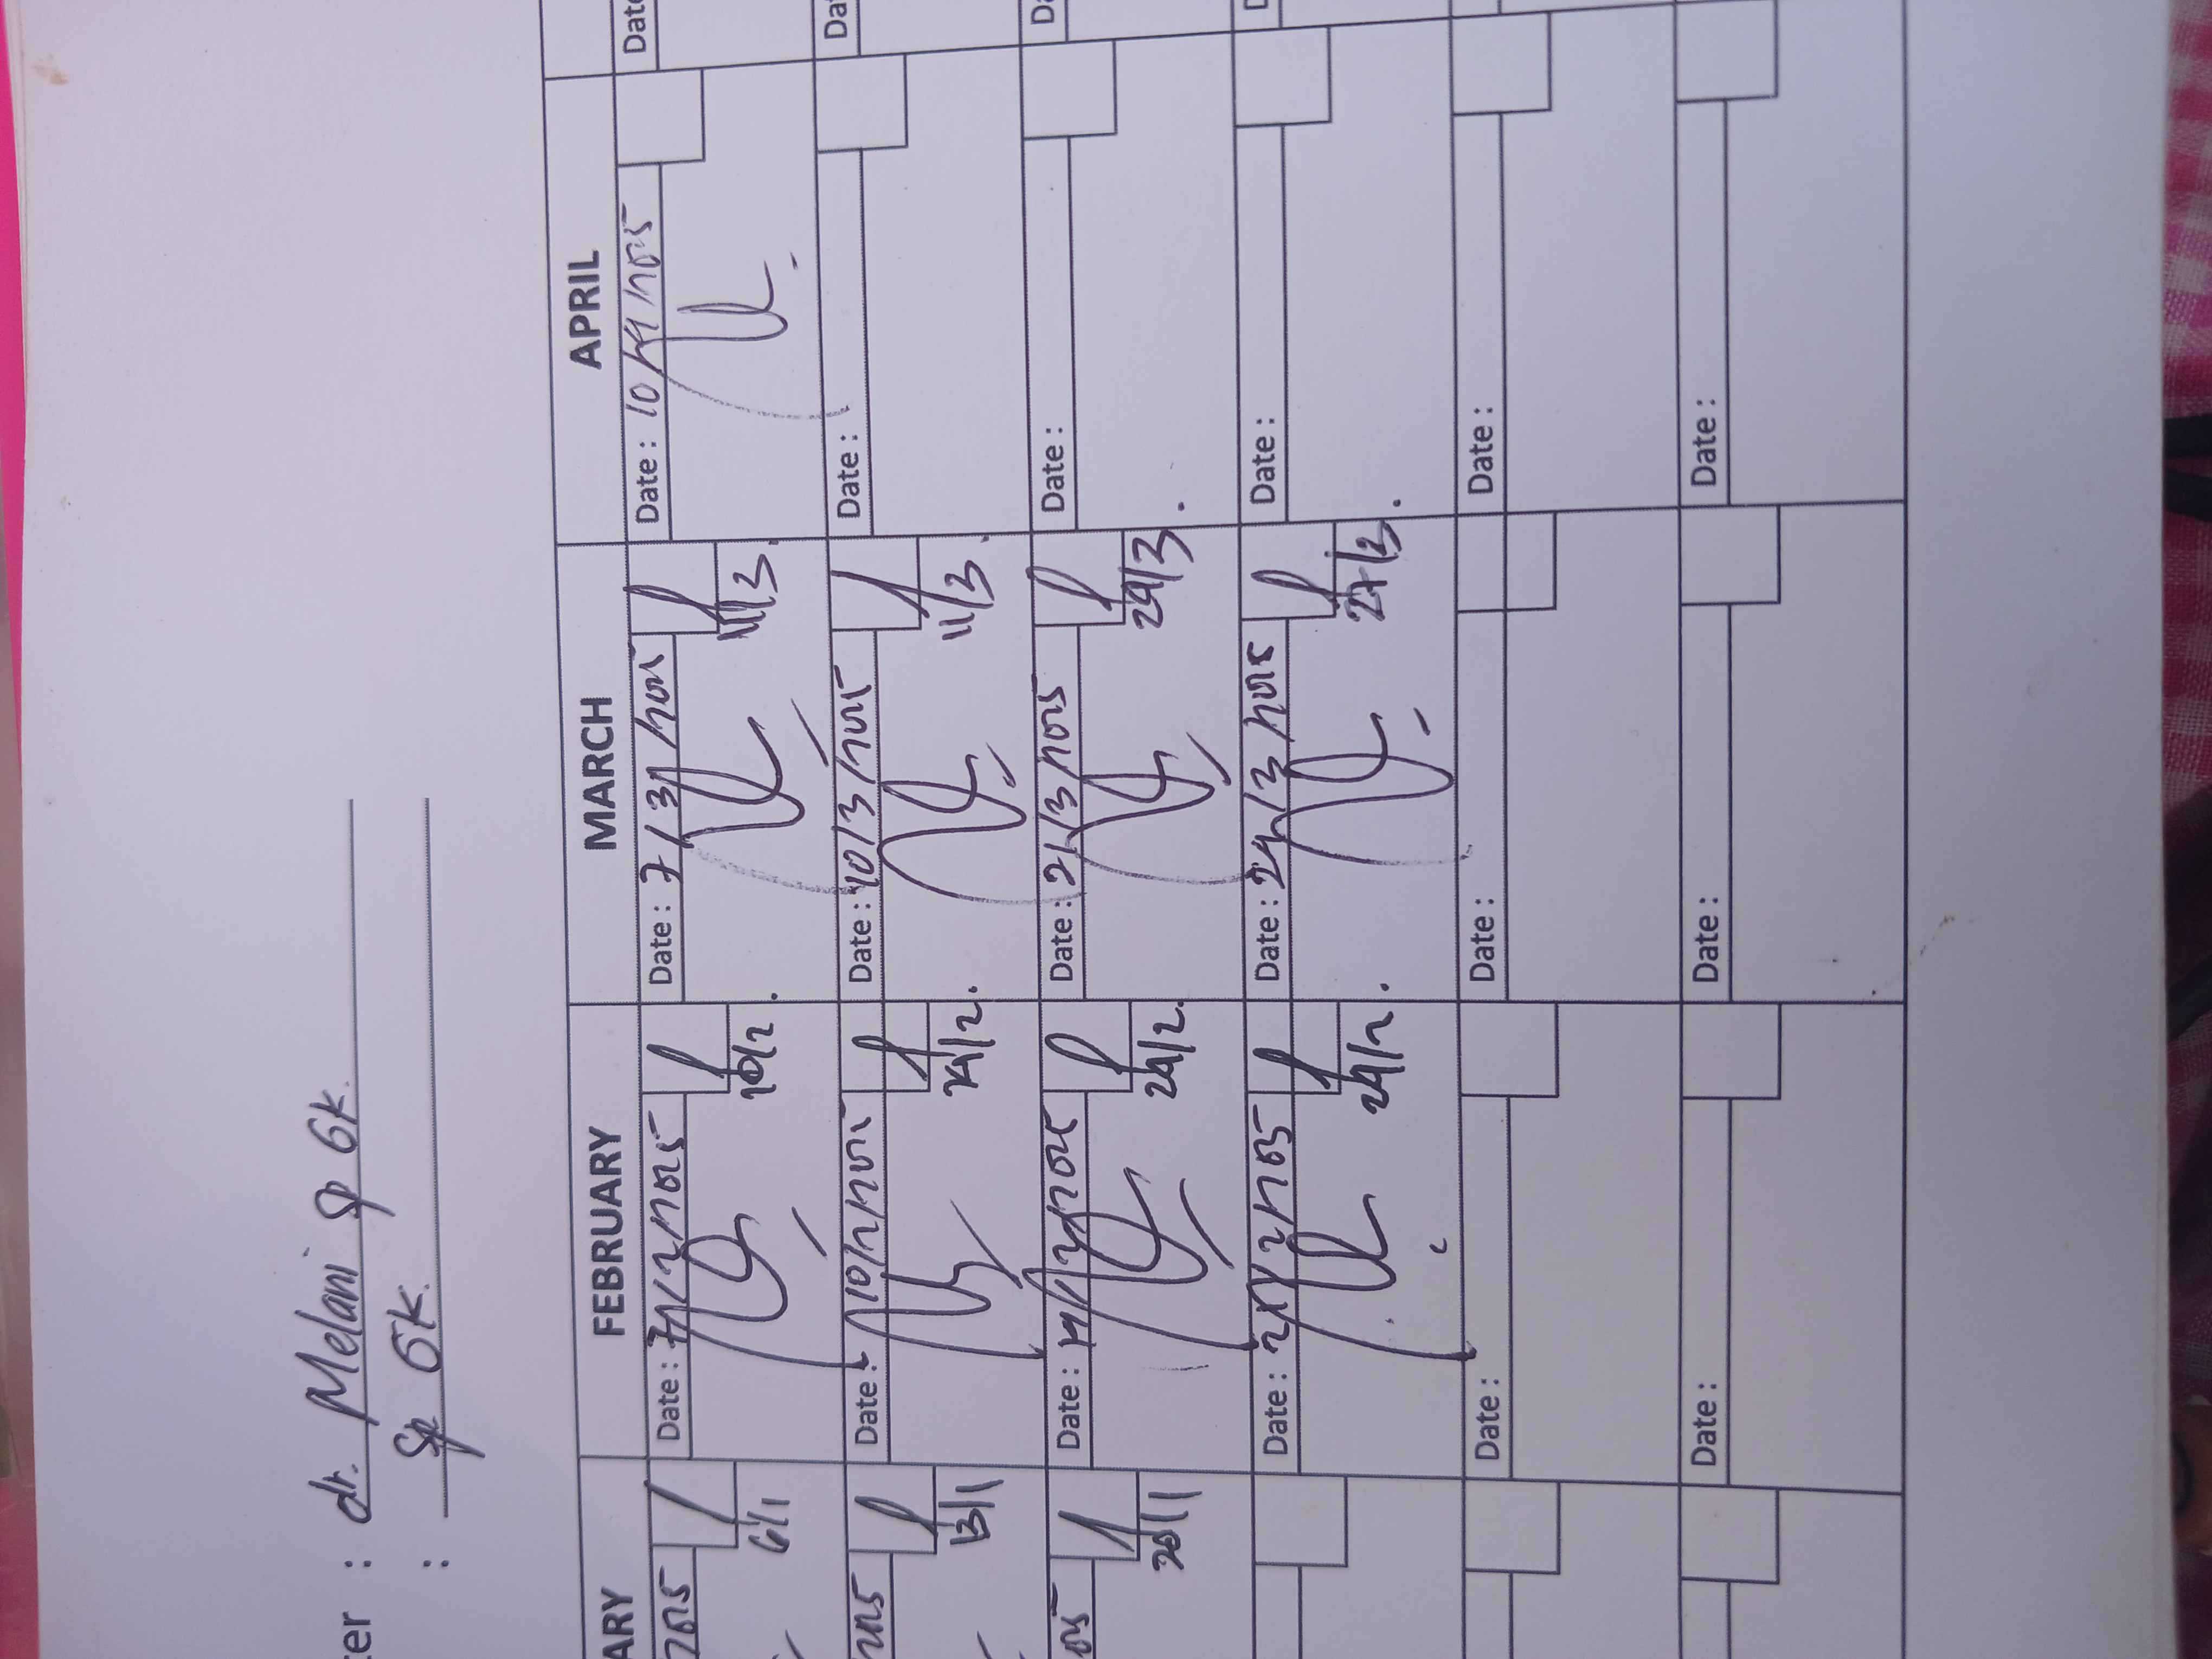 ter : dr. Melani Sp GK.
: Sp GK.
ARY FEBRUARY MARCH APRIL
2025 Date : 7/2/2025 Date : 7/3/2025 Date : 10/4/2025 Date
6/1 10/2 11/3
2025 Date : 10/2/2025 Date : 10/3/2025 Date : Da
13/1 24/2 11/3
25 Date : Date : 21/3/2025 Date : Da
20/1 24/2 24/3
Date : Date : 24/3/2025 Date : D
24/2 27/3
Date : Date : Date :
Date : Date : Date :